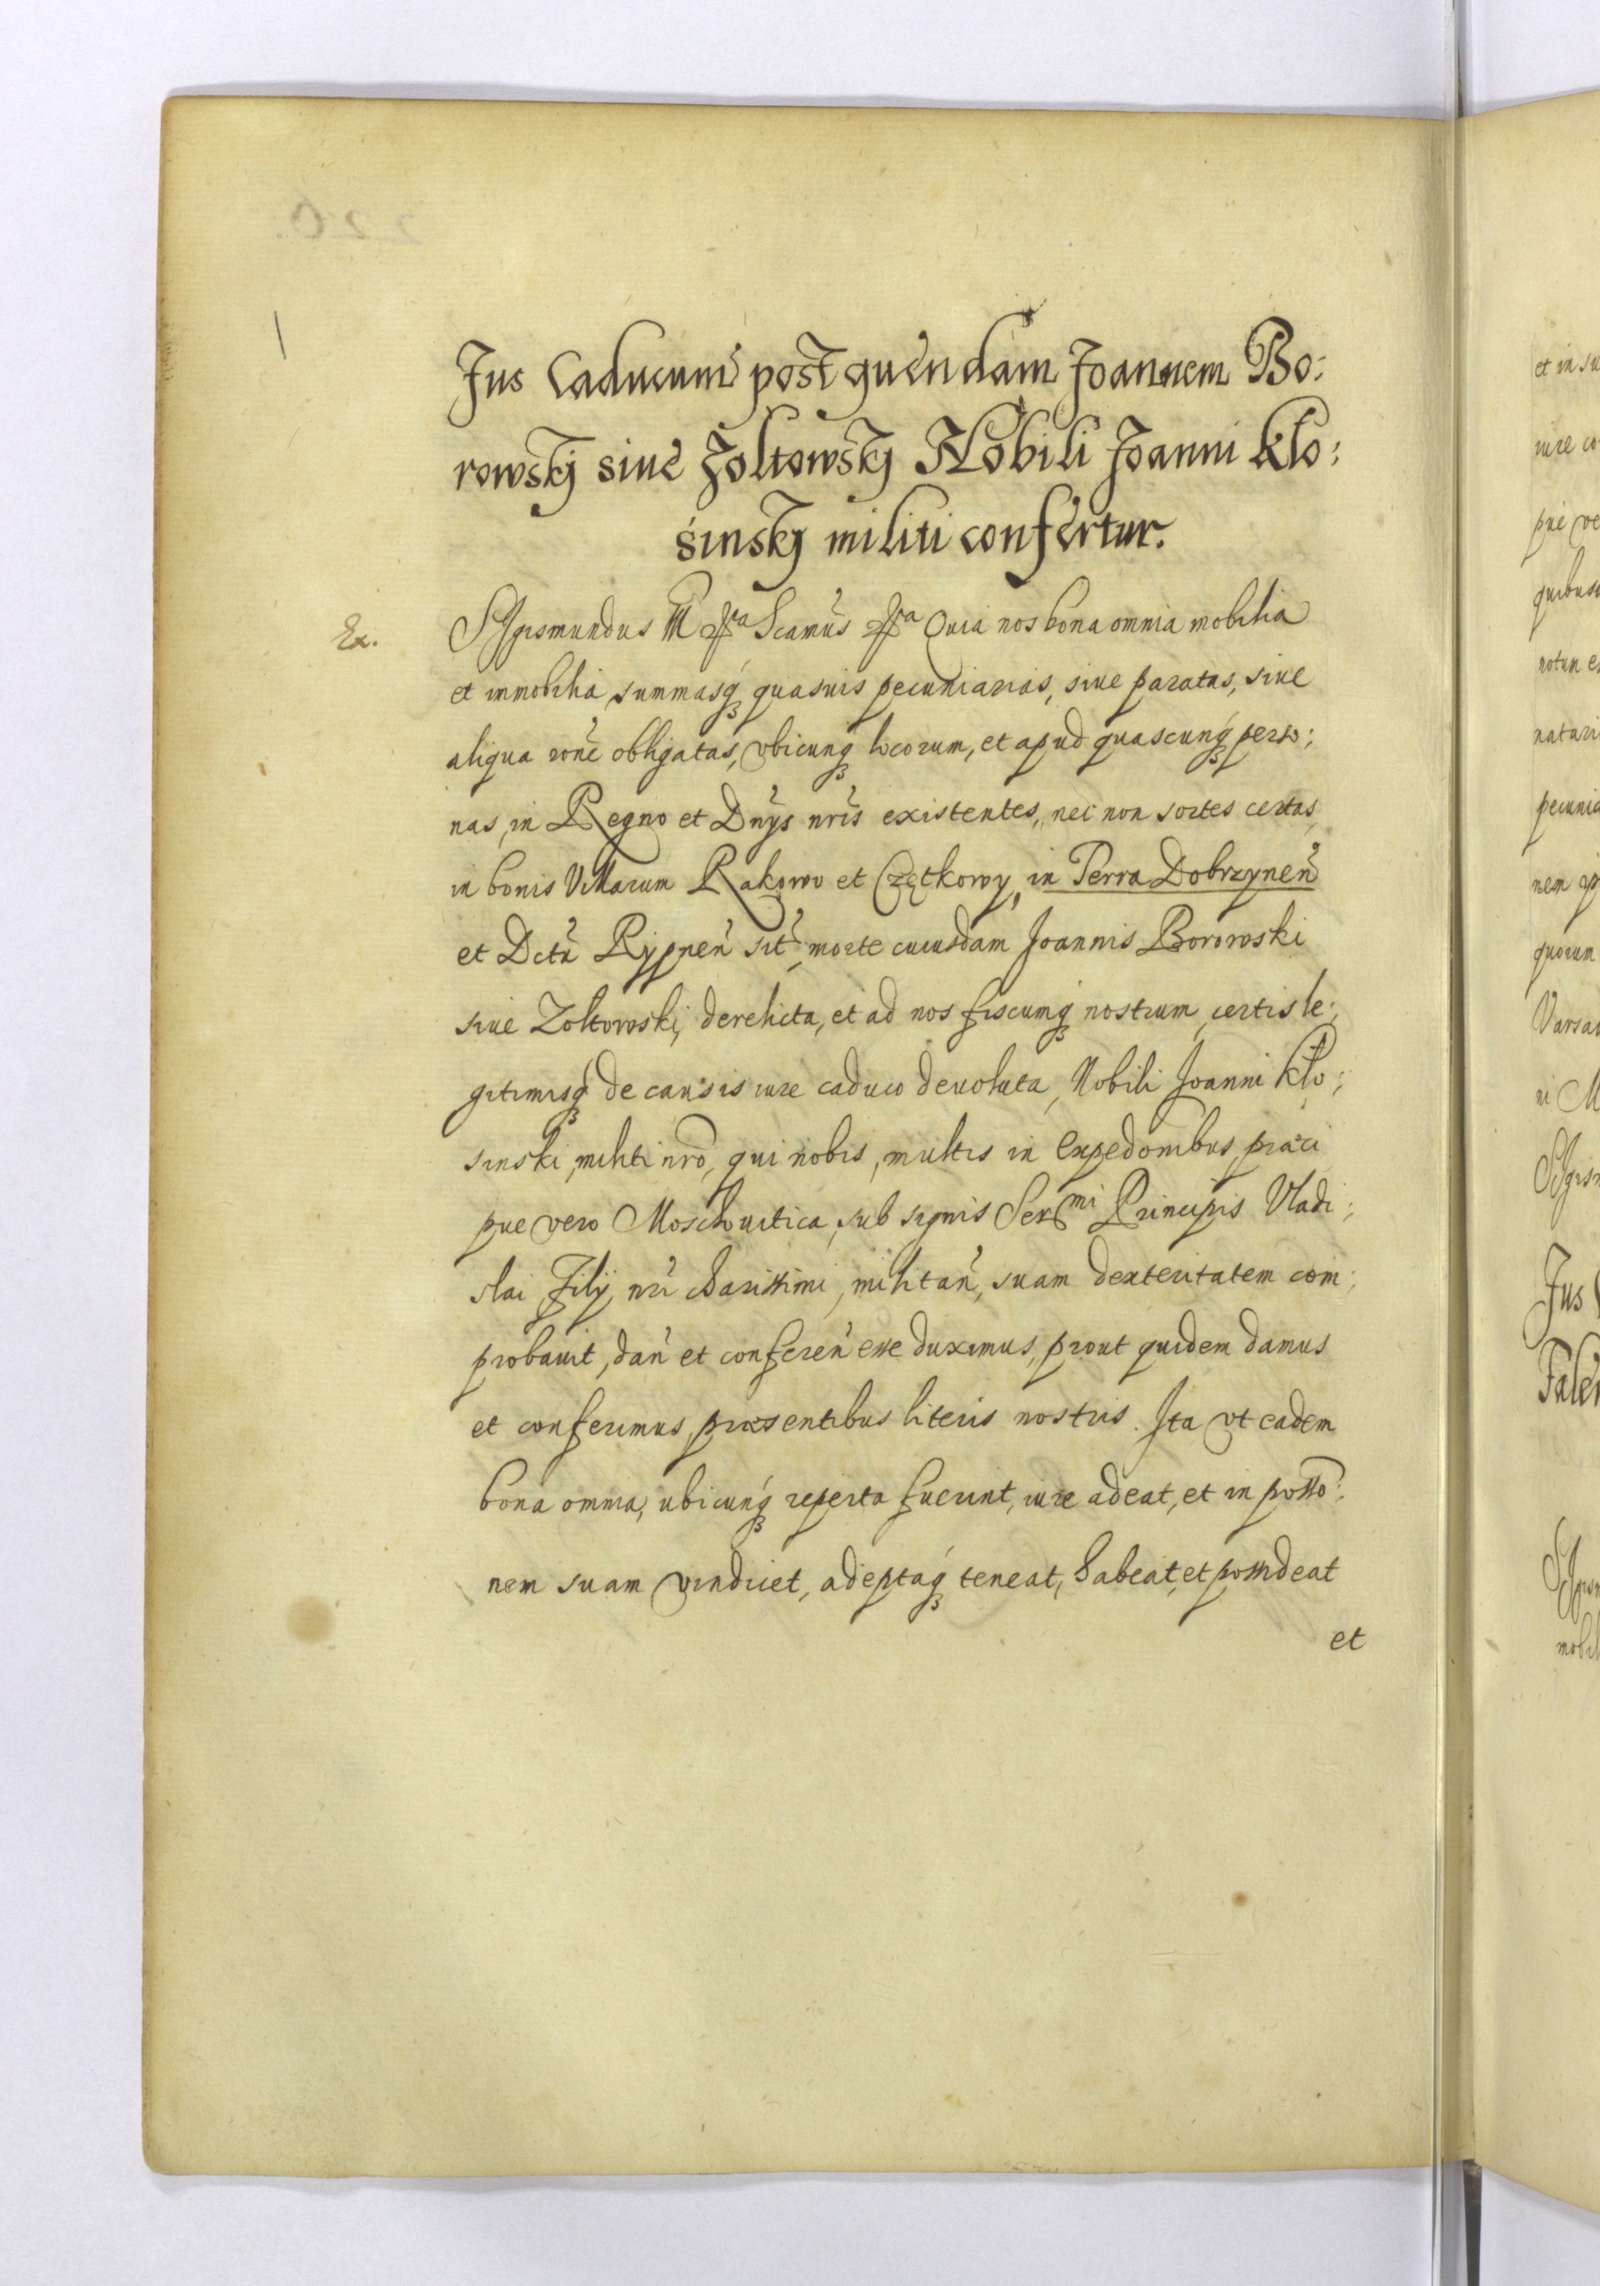 Jus Caducum post quendam Joannem Bo:
rowskj siue Zoltowskj Nobili Joanni Kło:
śinskj militi confertur.
Ex.
Sigismundus III etc. Scamus etc. Quia nos bona omnia mobilia
et immobilia summasq quasuis pecuniarias, siue paratas, siue
aliqua rone obligatas, vbicunq locorum, et apud quascunq perso:
nas, in Regno et Dnys nris existentes, nec non sortes certas
in bonis Villarum Rakowo et Czętkowy, in Terra Dobrzynen
et Dctu Rypnen sit, morte cuiusdam Joannis Borowski
siue Zoltowski, derelicta, et ad nos fiscumq nostrum, certis le:
gitimisq de causis iure caduco deuoluta, Nobili Joanni Kło:
sinski, militi nro, qui nobis, multis in expedonibus, praeci
pue vero Moschouitica, sub signis Sermi Principis Vladi:
slai Filij nri charissimi, militan, suam dexteritatem com:
probauit, dan et conferen esse duximus, prout quidem damus
et conferimus, praesentibus literis nostris. Ita vt eadem
bona omnia, ubicunq reperta fuerint, iure adeat, et in posso:
nem suam vindicet, adeptaq teneat, habeat, et possideat
et